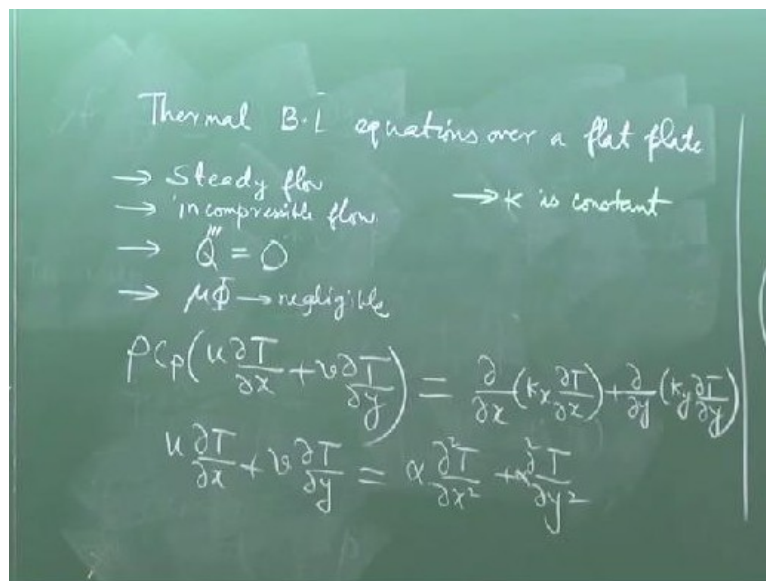 Thermal B.L equations over a flat plate
→ Steady flow
→ incompressible flow
→ Q̇''' = 0
→ μΦ → negligible
→ K is constant
ρCp(u ∂T/∂x + v ∂T/∂y) = ∂/∂x (Kx ∂T/∂x) + ∂/∂y (Ky ∂T/∂y)
u ∂T/∂x + v ∂T/∂y = α ∂²T/∂x² + α ∂²T/∂y²